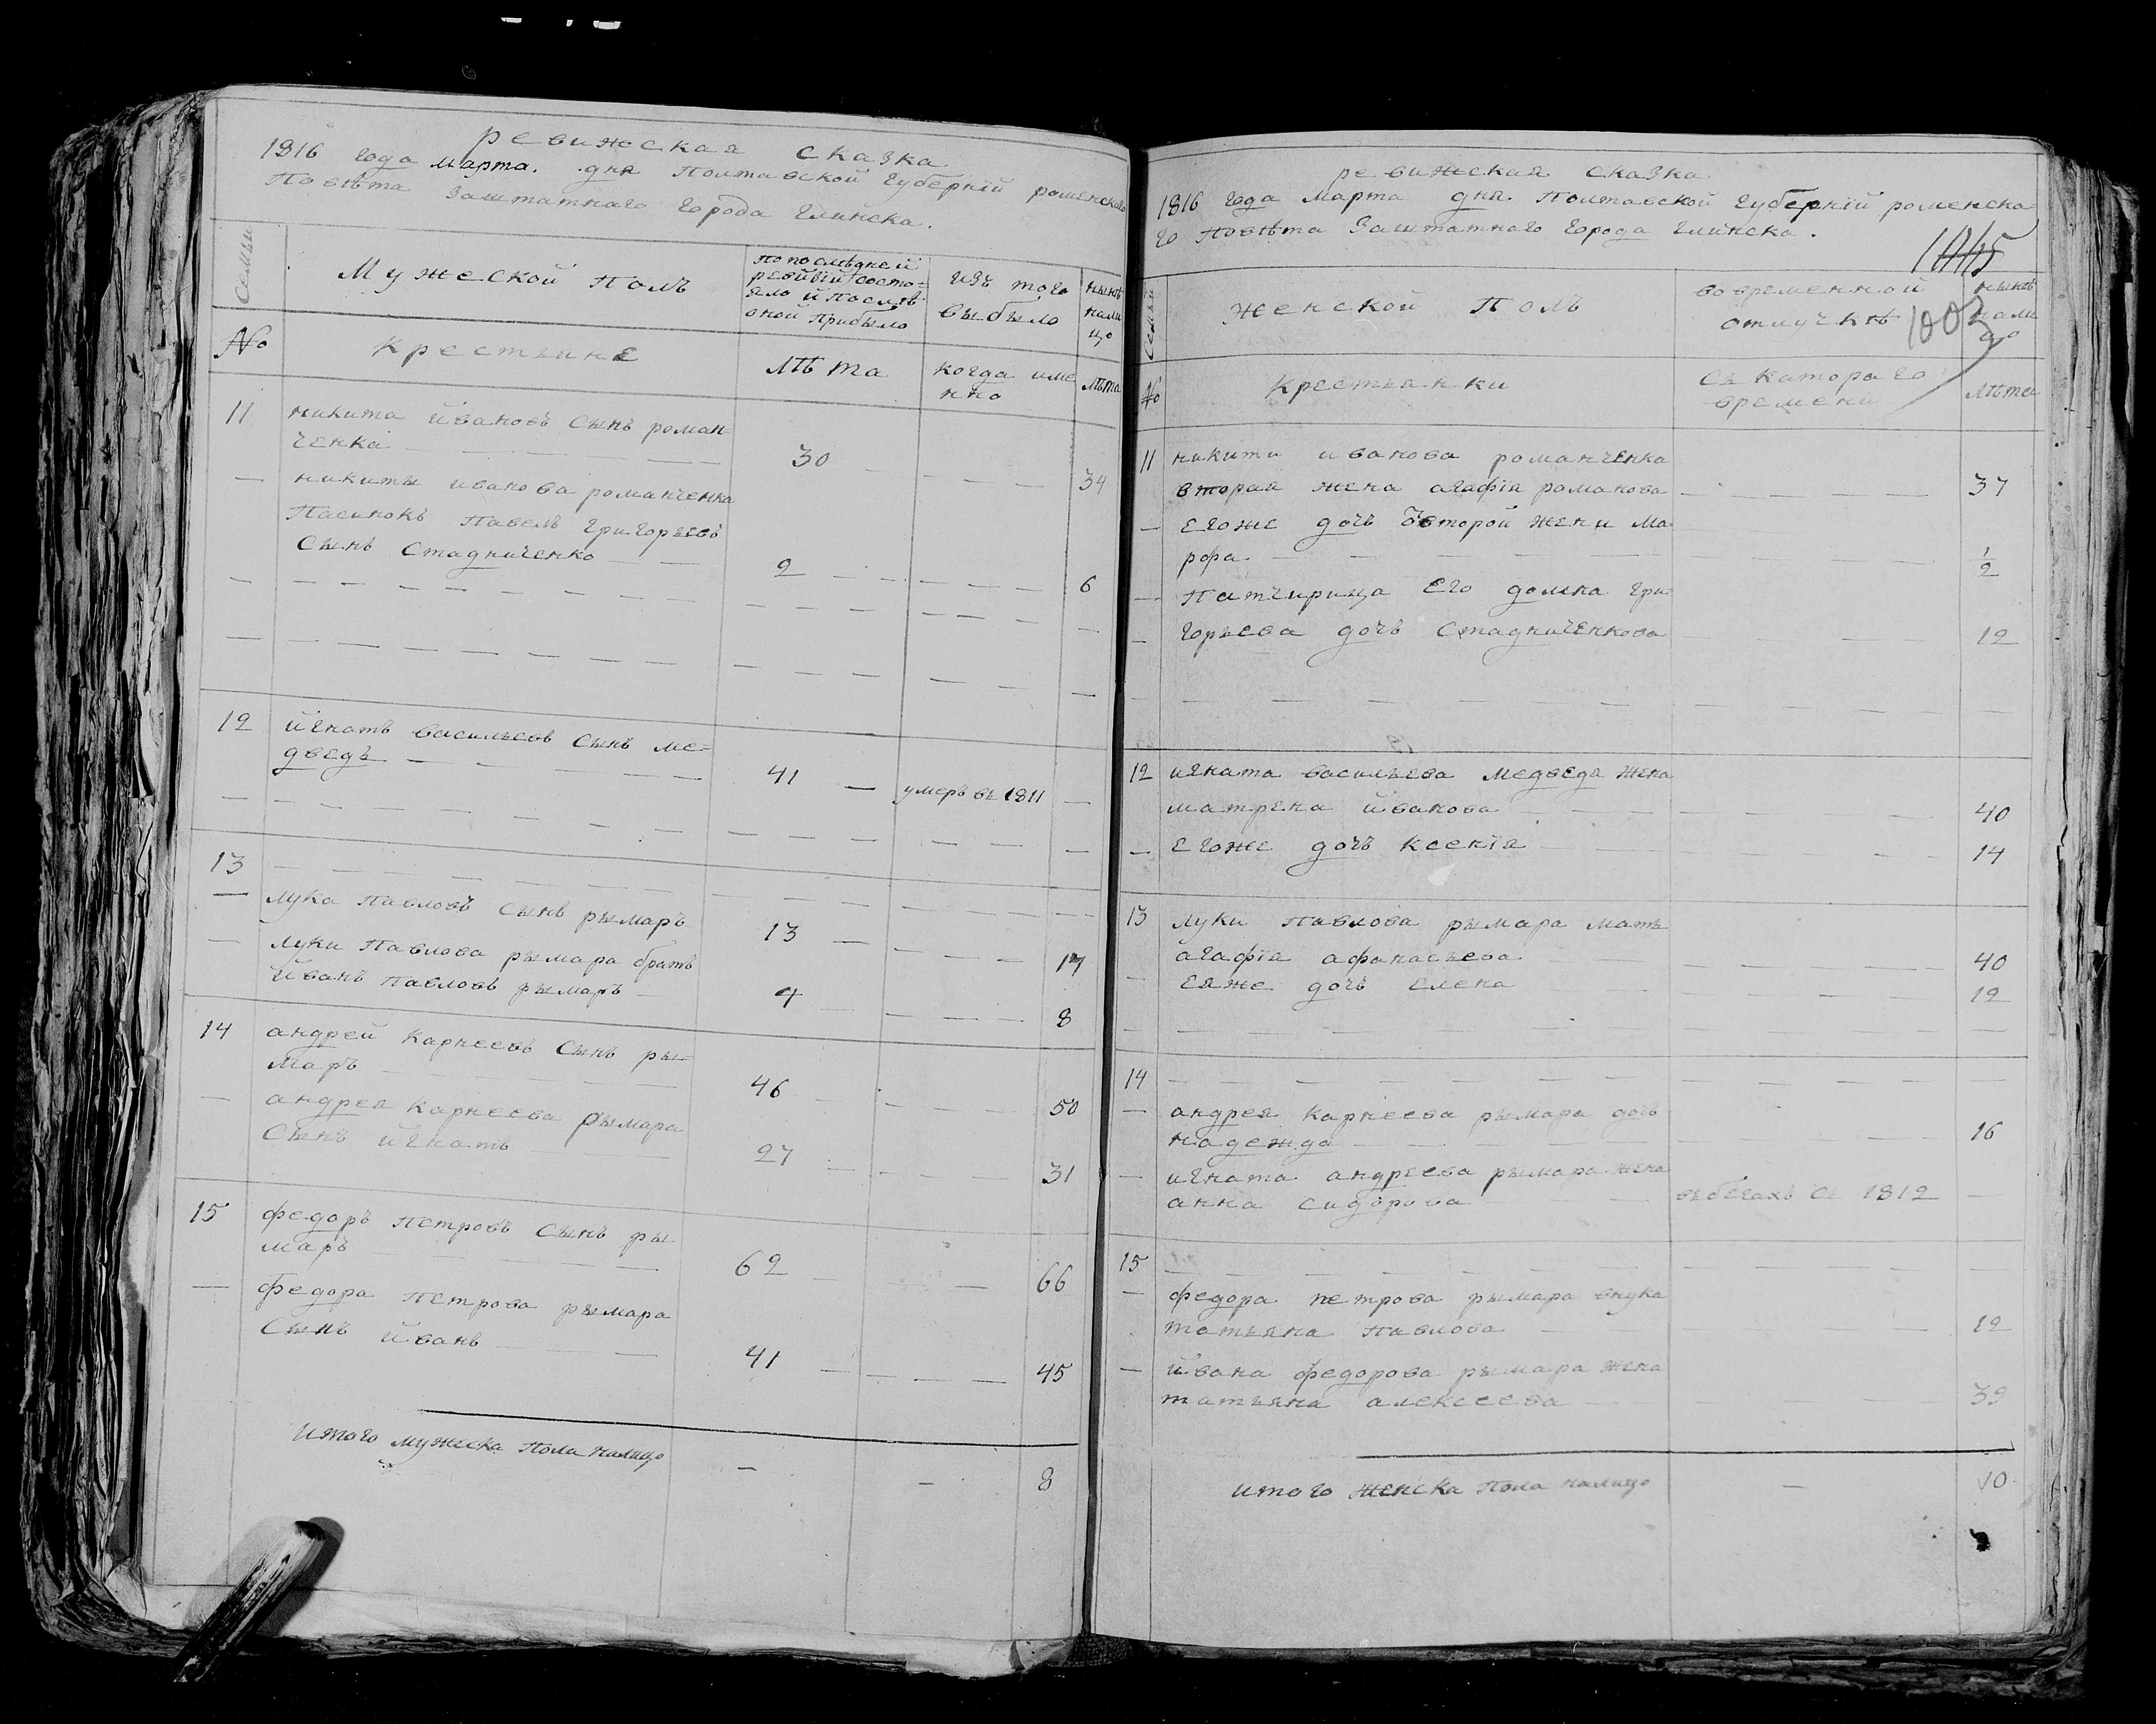 ревижская сказка
1816 года марта. дня Полтавской губернїй роменского
Повѣта заштатнаго города глинска.
Семьи
Мужеской полъ
по последней
ревизїй состо=
яло и после
оной прибыло
изъ того
выбыло
нынѣ
нали
цо
№
Крестьяне
лѣта
когда име
нно
лѣта
11 никита ивановъ сынъ роман=
ченка 30 34
никиты иванова романченка
пасинокъ павелъ григорьевъ
сынъ стадниченко 2 6
12 игнатъ васильевъ сынъ ме=
дведъ 41 умеръ въ 1811
13
лука павловъ сынъ рымаръ 13 17
луки павлова рымара братъ
иванъ павловъ рымаръ 4 8
14 андрей карнеевъ сынъ ры=
маръ 46 50
андрея карнеева рымара
сынъ игнатъ 27 31
15 федоръ петровъ сынъ ры
маръ 62 66
федора петрова рымара
сынъ иванъ 41 45
итого мужеска пола налицо 8
ревижская сказка
1816 года марта дня. Полтавской губернїй роменска
го повѣта заштатнаго города глинска.
1045
1003
Семьи
женской полъ
во временной
отлучкѣ
нынѣ
нали
цо
№
крестьянки
съ катораго
времени
лѣта
11 никити иванова романченка
вторая жена агафїя романова 37
егоже дочъ ѿ второй жени ма
рфа. 1/2
патчирица его домна гри
горьева дочъ стадниченкова 12
12 игната васильева медведя жена
матрена иванова 40
егоже дочъ ксенїя 14
13 луки павлова рымара мать
агафїя афанасьева 40
еяже дочъ елена 12
14
андрея карнеева рымара дочъ
надежда 16
игната андреева рымара жена
анна сидорова въ бегахъ съ 1812
15
федора петрова рымара внука
татьяна павлова 12
ивана федорова рымара жена
татьяна алексеева 39
итого женска пола налицо 10